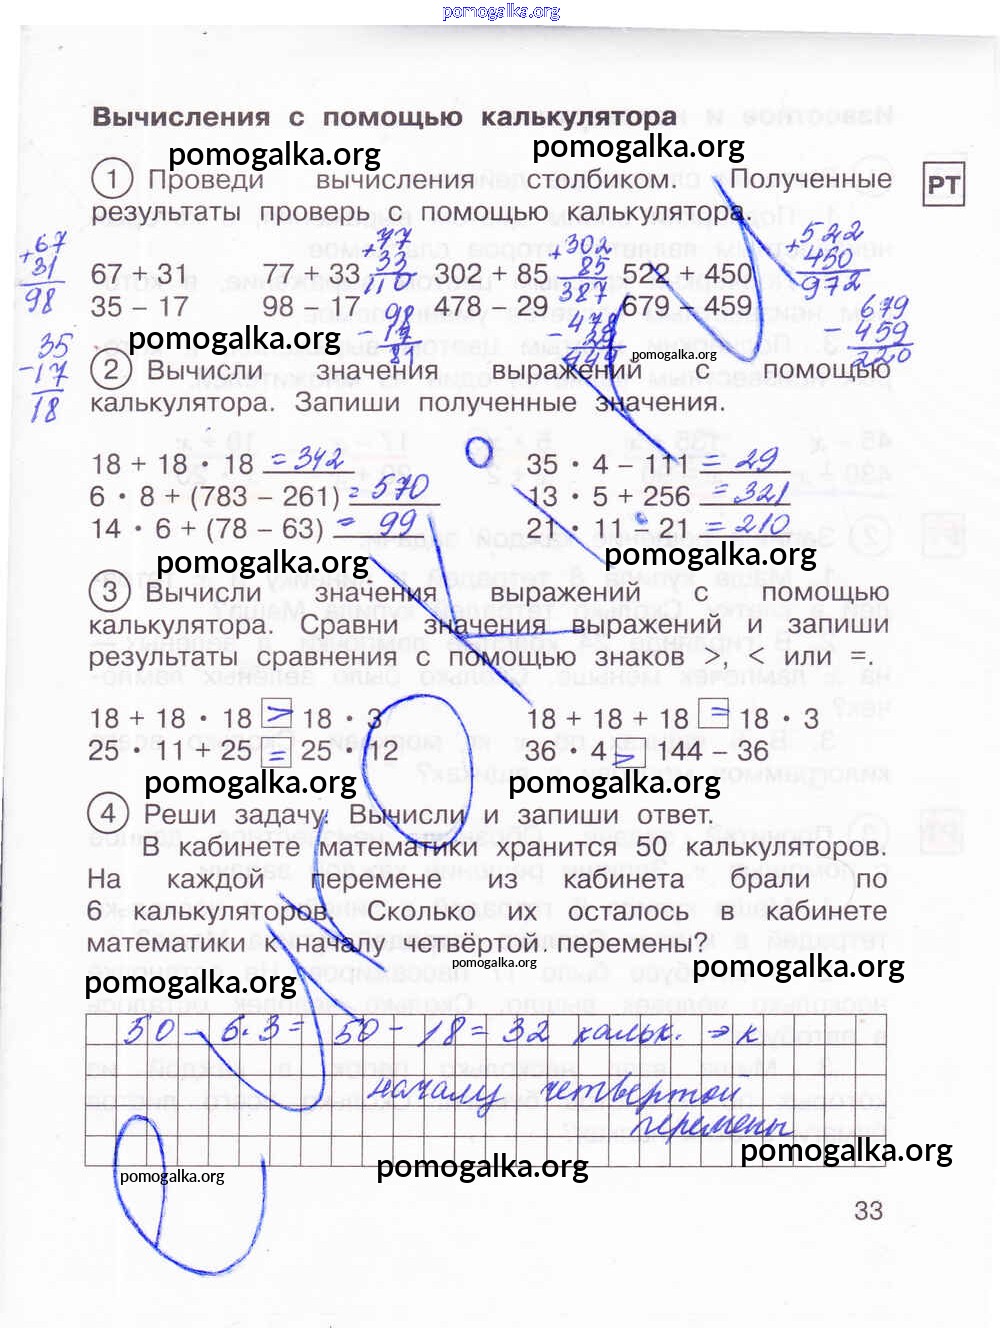 pomogalka.org
Вычисления с помощью калькулятора
pomogalka.org pomogalka.org
1 Проведи вычисления столбиком. Полученные
результаты проверь с помощью калькулятора.
РТ
67 + 31 77 + 33 302 + 85 522 + 450
35 – 17 98 – 17 478 – 29 679 – 459
+ 67 31 98
35 - 17 18
+ 77 33 110
+ 302 85 387
+ 522 450 972
- 679 459 220
pomogalka.org pomogalka.org
2 Вычисли значения выражений с помощью
калькулятора. Запиши полученные значения.
18 + 18 · 18 = 342 35 · 4 – 111 = 29
6 · 8 + (783 – 261) = 570 13 · 5 + 256 = 321
14 · 6 + (78 – 63) = 99 21 · 11 – 21 = 210
pomogalka.org pomogalka.org
3 Вычисли значения выражений с помощью
калькулятора. Сравни значения выражений и запиши
результаты сравнения с помощью знаков >, < или =.
18 + 18 · 18 > 18 · 3 18 + 18 + 18 = 18 · 3
25 · 11 + 25 = 25 · 12 36 · 4 > 144 – 36
pomogalka.org pomogalka.org
4 Реши задачу. Вычисли и запиши ответ.
В кабинете математики хранится 50 калькуляторов.
На каждой перемене из кабинета брали по
6 калькуляторов. Сколько их осталось в кабинете
математики к началу четвёртой перемены?
pomogalka.org pomogalka.org pomogalka.org
50 - 6·3 = 50 - 18 = 32 кальк. ⇒ к
началу четвертой
перемены
pomogalka.org pomogalka.org pomogalka.org
33